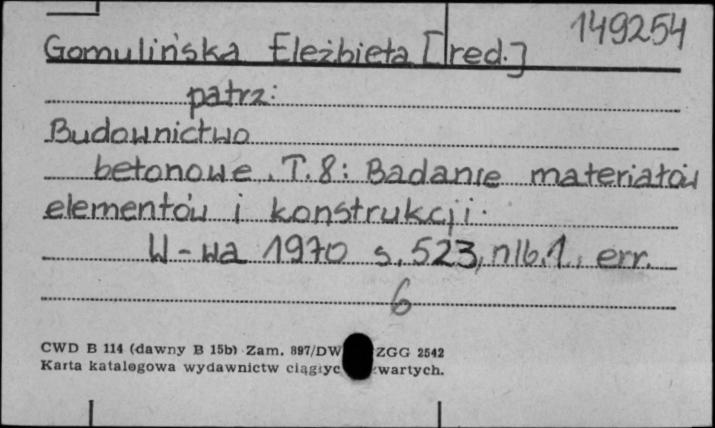 149254
Gomulińska Eleżbieta [red.]
patrz:
Budownictwo
betonowe. T. 8: Badanie materiałów
elementów i konstrukcji.
W-wa 1970 s. 523, nlb. 1. err.
6
CWD B 114 (dawny B 15b) Zam. 897/DW ZGG 2542
Karta katalogowa wydawnictw ciągłyc wartych.